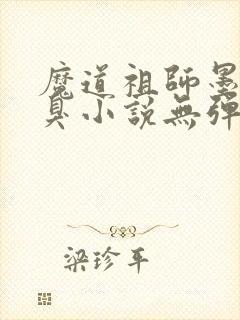 魔道祖師墨
臭小說無彈
梁珍平